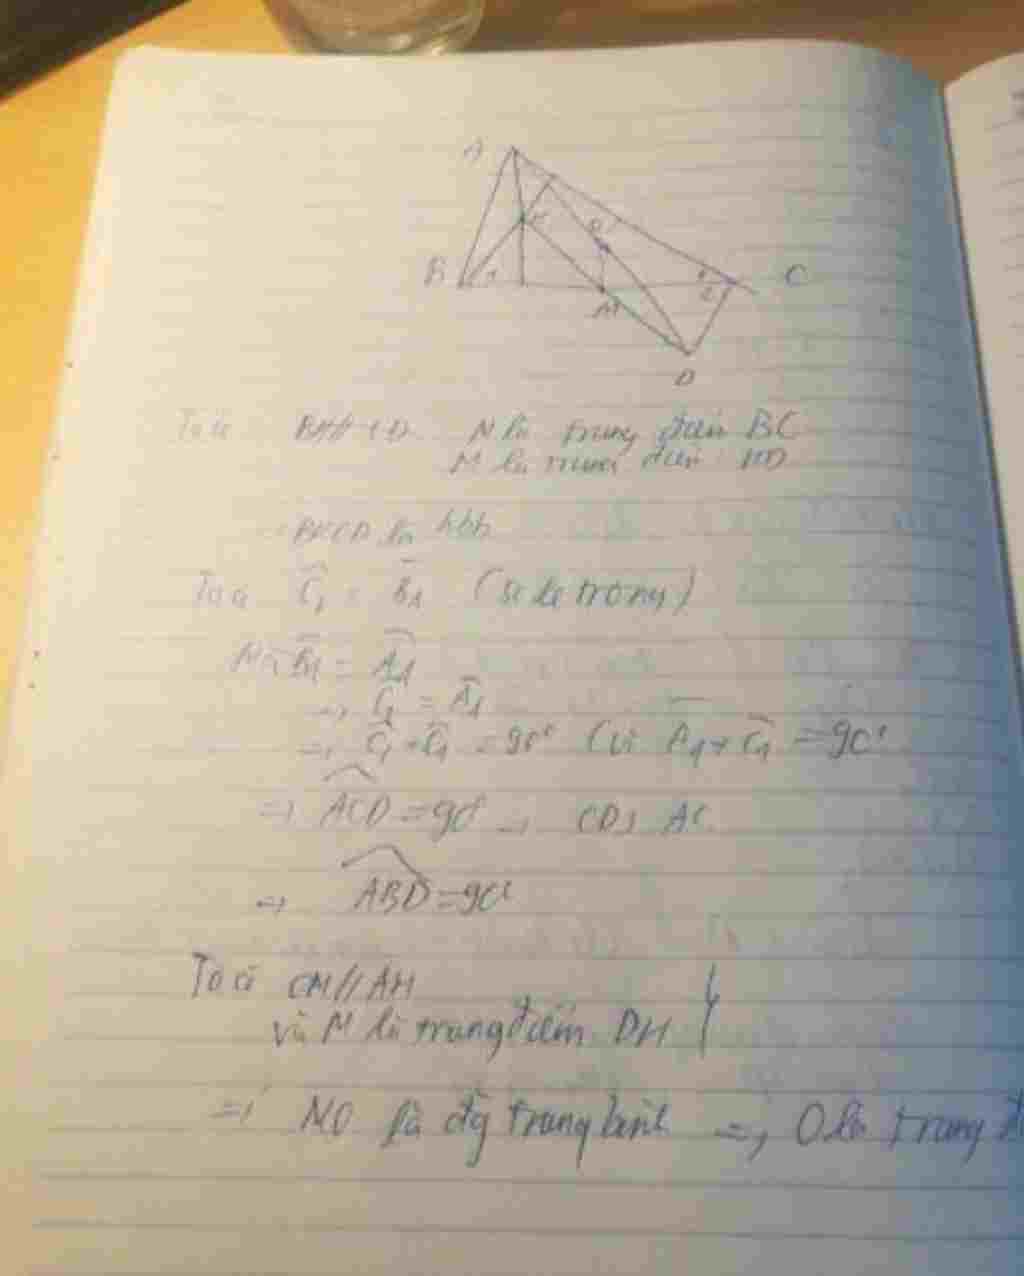 A
H
O
B 1
1
2 C
M
D
Ta có BH//CD M là trung điểm BC
M là trung điểm HD
BHCD là hbh
Ta có Ĉ₂ = B̂₁ (so le trong)
Mà B̂₁ = Â₁
→ Ĉ₂ = Â₁
=> Ĉ₂ + Ĉ₁ = 90° (vì Â₁ + Ĉ₁ = 90°
=> ACD = 90° → CD ⊥ AC
=> ABD = 90°
Ta có OM // AH
và M là trung điểm DH
=> MO là đg trung bình => O là trung